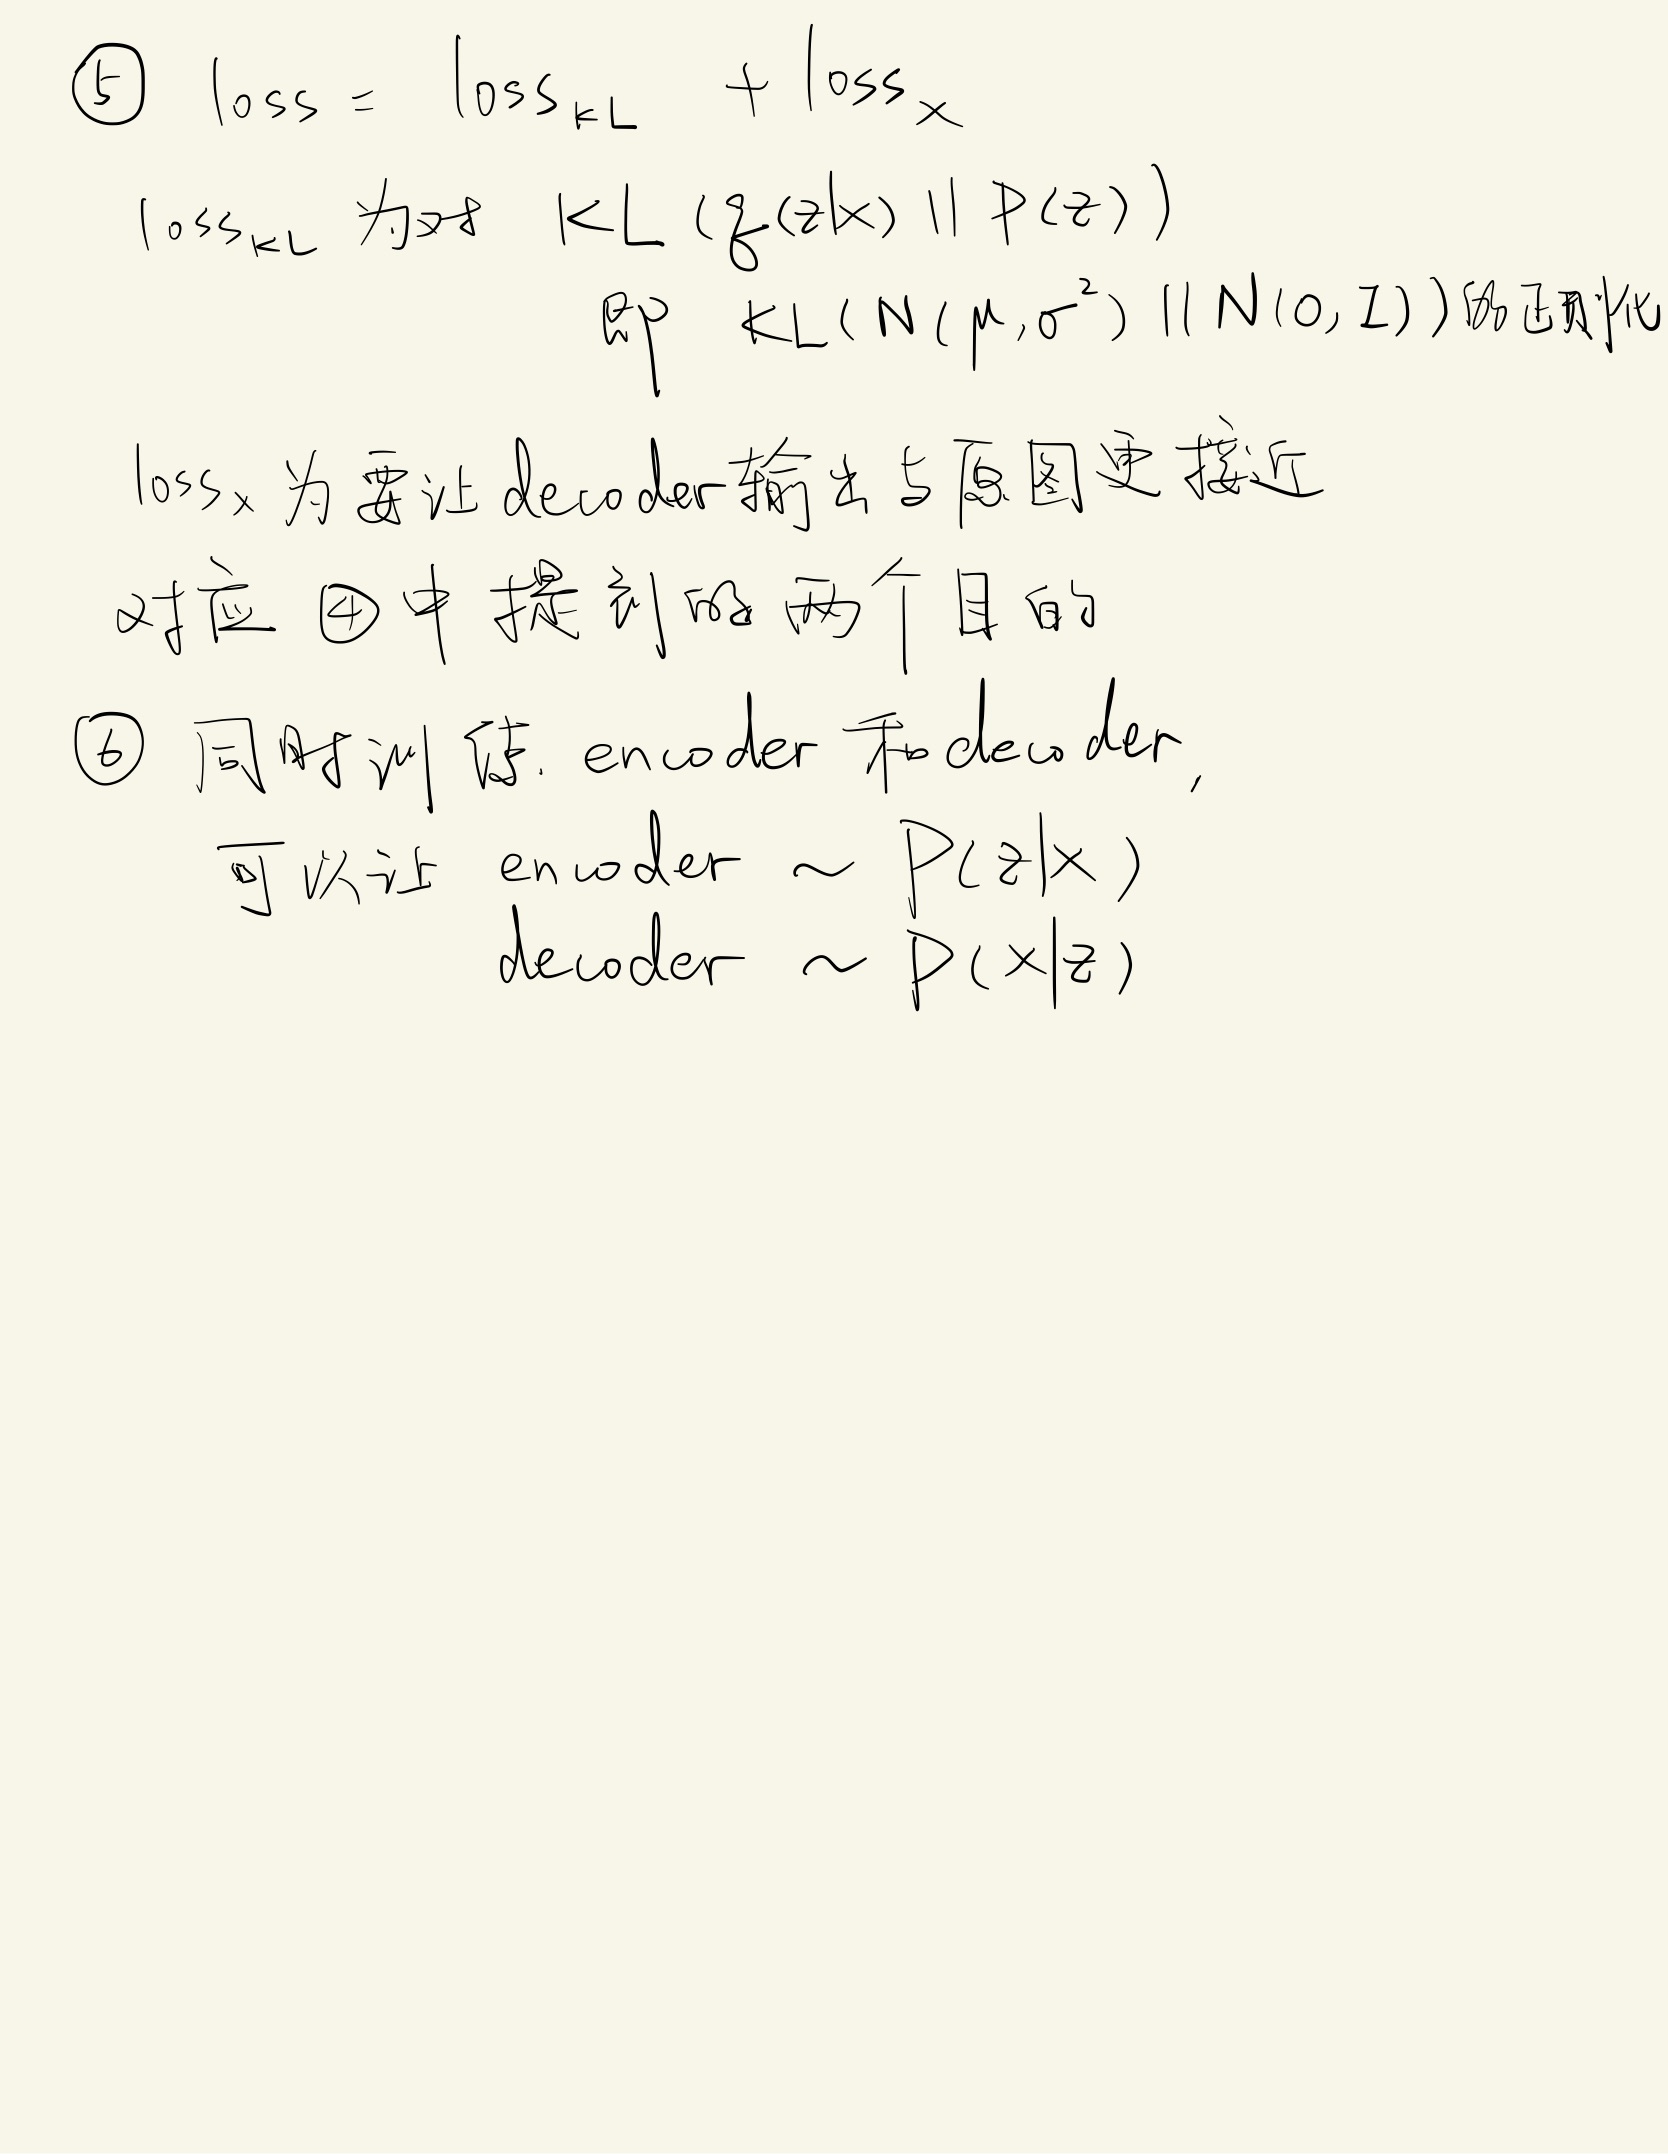 ⑤ loss = loss_KL + loss_x
loss_KL 为对 KL (q(z|x) || P(z))
即 KL(N(μ,σ²) || N(0,I))的正则化
loss_x 为要让decoder输出与原图更接近
对应④中提到的两个目的
⑥ 同时训练 encoder和decoder,
可以让 encoder ~ P(z|x)
decoder ~ P(x|z)